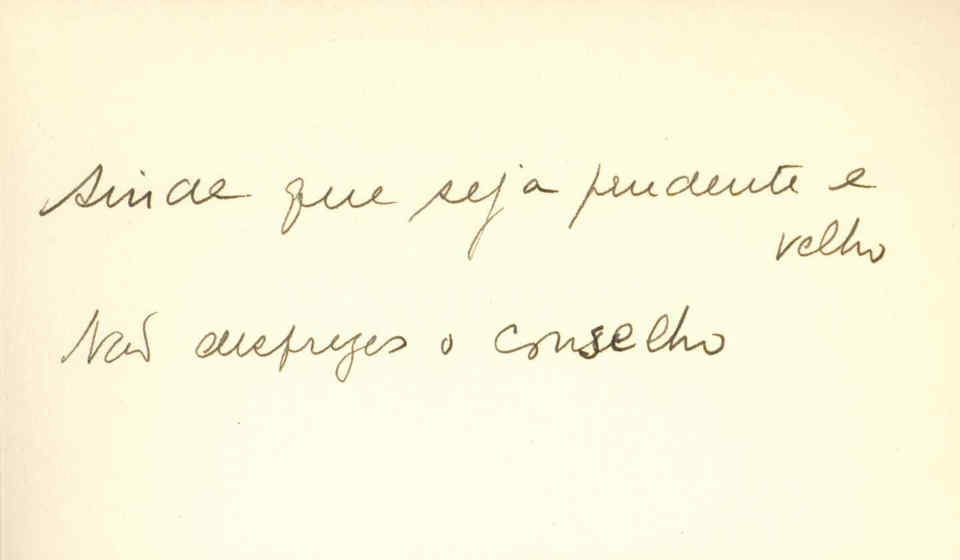 Ainda que seja prudente e
velho
Não desprezes o conselho